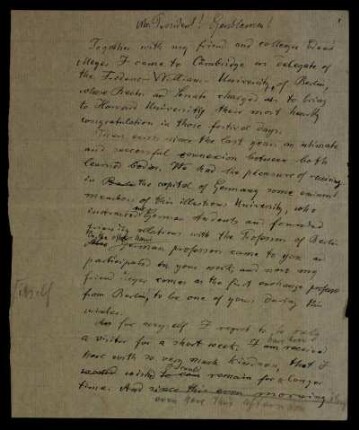 Mr. President! Gentlemen!
Together with my friend and collegue Eduard
Meyer I came to Cambridge as delegate of
the Frederic-William-University of Berlin,
whose Rector and Senate charged us to bring
to Harvard University their most hearty
congratulation in these festival days.
There exists since the last years an intimate
and successful connexion between both
learned bodies. We had the pleasure of receiving
in the capital of Germany some eminent
members of this illustrious University, who
instructed our German students and founded
friendly relations with the Professors of Berlin.
On the other hand German professors came to you and
participated in your work, and now my
friend Meyer comes as the first exchange professor
from Berlin, to be one of yours during this
winter.
As for myself I regret to be only
a visitor for a short week; I am received
here with so very much kindness, that I
wished I could remain for a longer
time. And since this even morning
even here this afternoon